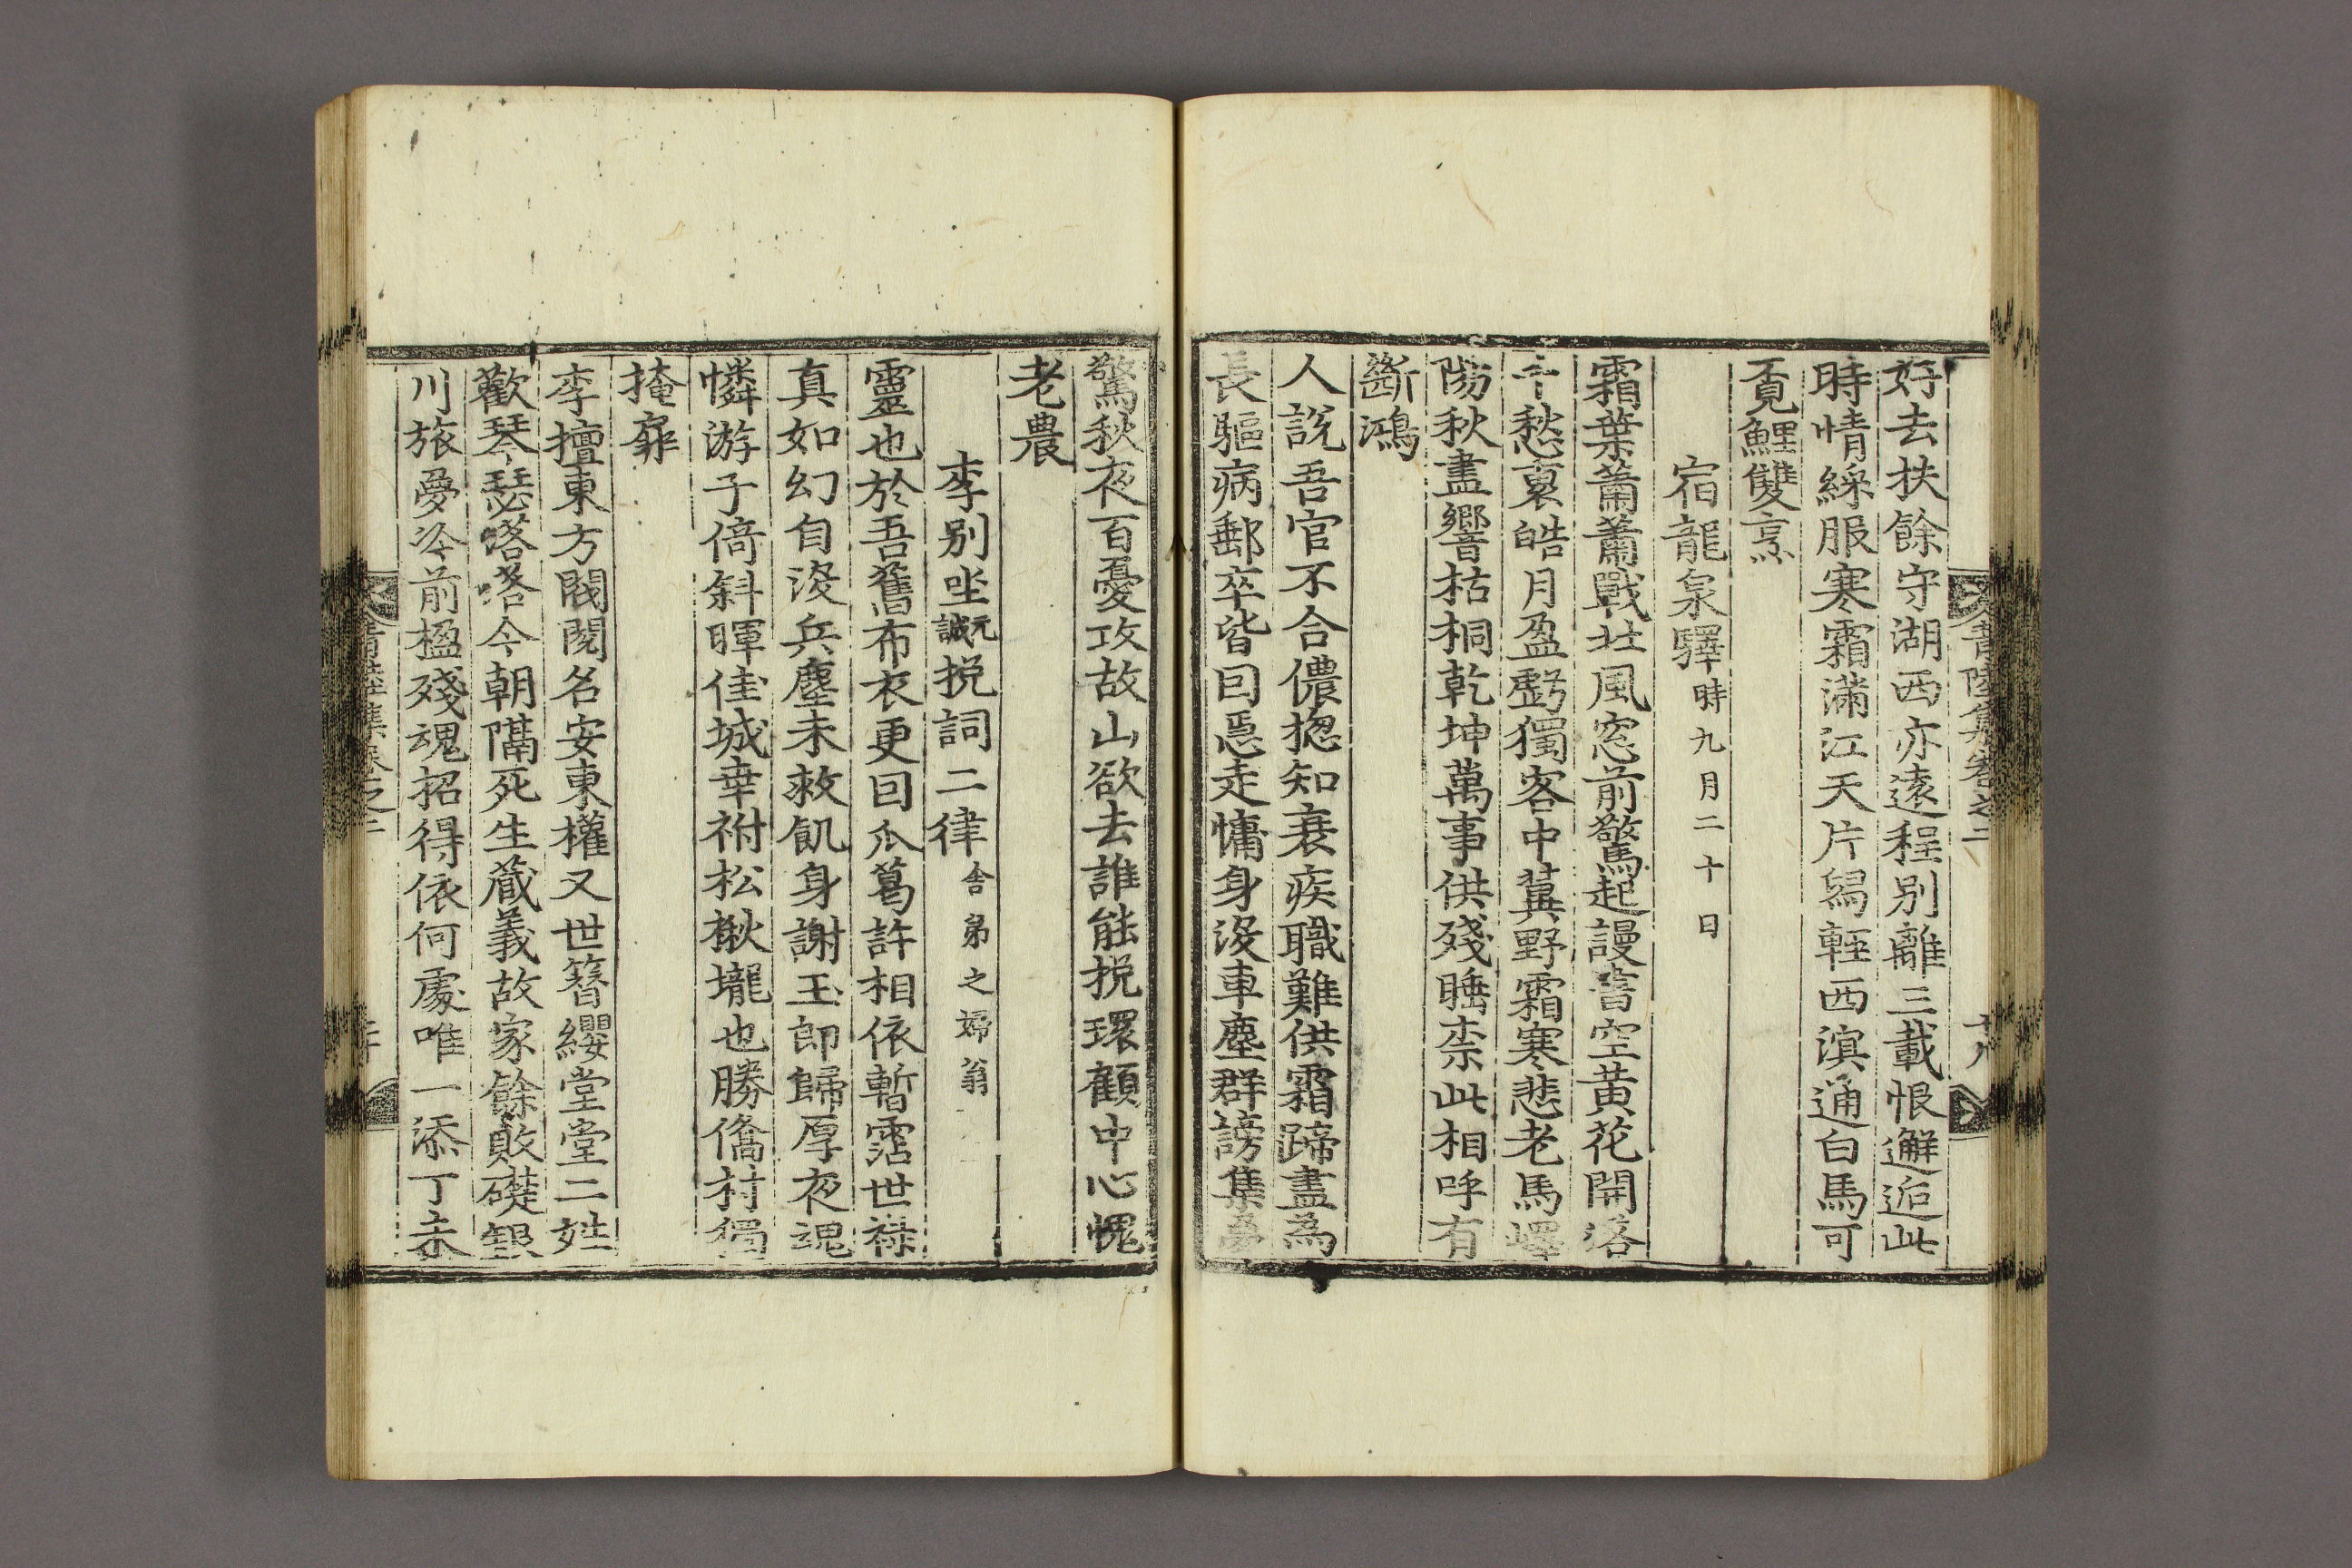 好去扶餘守湖西亦遠程別離三載恨邂逅此
時情綵服寒霜滿江天片舄輕西溟通白馬可
覓鯉雙烹
宿龍泉驛時九月二十日
霜葉蕭蕭戰北風窓前驚起謾書空黃花開落
愁裏皓月盈虧獨客中冀野霜寒悲老馬嶧
陽秋盡響枯桐乾坤萬事供殘睡柰此相呼有
斷鴻
人說吾官不合儂揔知衰疾職難供霜蹄盡為
長驅病郵卒皆曰惡走慵身沒車塵群謗集夢
驚秋夜百憂攻故山欲去誰能挽環顧中心愧
老農
李別坐元誠挽詞二律舍弟之婦翁
靈也於吾舊布衣更回瓜葛許相依暫霑世祿
真如幻自沒兵塵未救飢身謝玉郎歸厚夜魂
憐游子倚斜暉佳城幸祔松楸壠也勝僑村獨
掩扉
李擅東方閥閱名安東權又世簪纓堂堂二姓
歡琴瑟落落今朝隔死生葳義故家餘敗礎銀
川旅夢冷前楹殘魂招得依何處唯一添丁未
青陸集卷之二
十八
青陸集卷之二